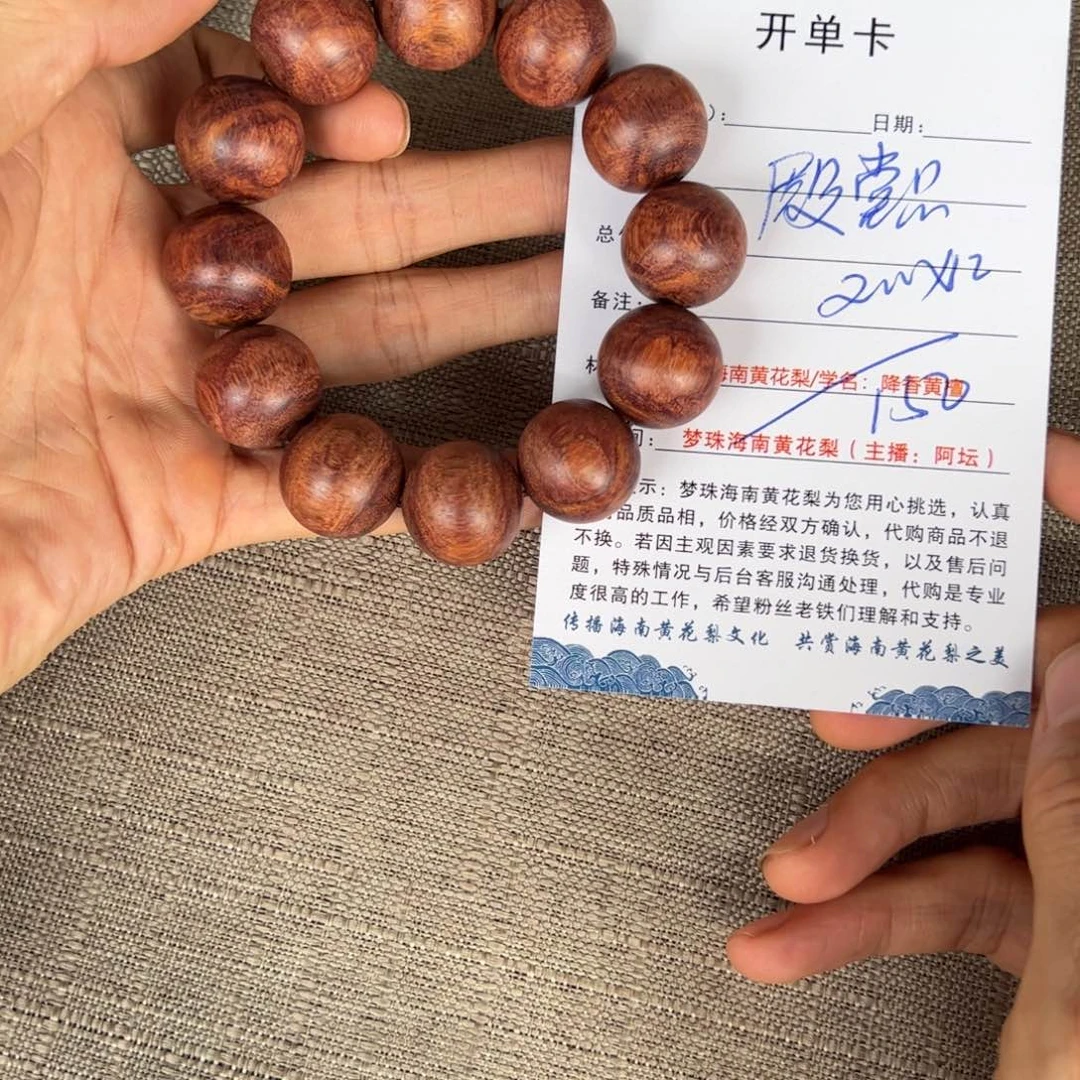 开单卡
): 日期:
殿堂品
总
备注:
海南黄花梨/学名: 降香黄檀
150
问: 梦珠海南黄花梨 ( 主播: 阿坛 )
示: 梦珠海南黄花梨为您用心挑选, 认真
品质品相, 价格经双方确认, 代购商品不退
不换。若因主观因素要求退货换货, 以及售后问
题, 特殊情况与后台客服沟通处理, 代购是专业
度很高的工作, 希望粉丝老铁们理解和支持。
传播海南黄花梨文化 共赏海南黄花梨之美